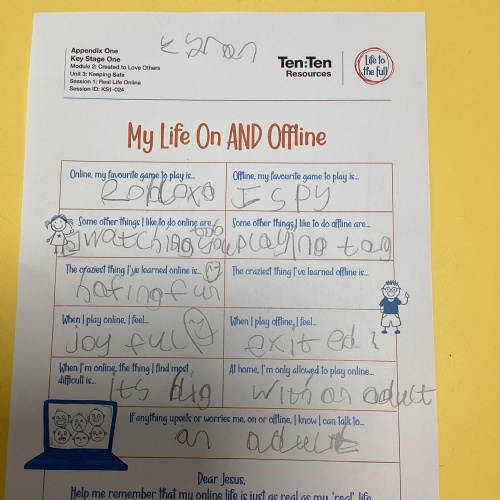 Appendix One
Key Stage One
Module 2: Created to Love Others
Unit 3: Keeping Safe
Session 1: Real Life Online
Session ID: KS1-024
Ten:Ten
Resources
Life to
the full
My Life On AND Offline
Online, my favourite game to play is...
Offline, my favourite game to play is...
I spy
Some other things I like to do online are...
watching
Some other things I like to do offline are...
playing tag
The craziest thing I've learned online is...
hafing fun
The craziest thing I've learned offline is...
When I play online, I feel...
joy full
When I play offline, I feel...
exited
When I'm online, the thing I find most
difficult is...
it's
At home, I'm only allowed to play online...
with an adult
If anything upsets or worries me, on or offline, I know I can talk to...
an adult
Dear Jesus,
Help me remember that my online life is just as real as my 'real' life